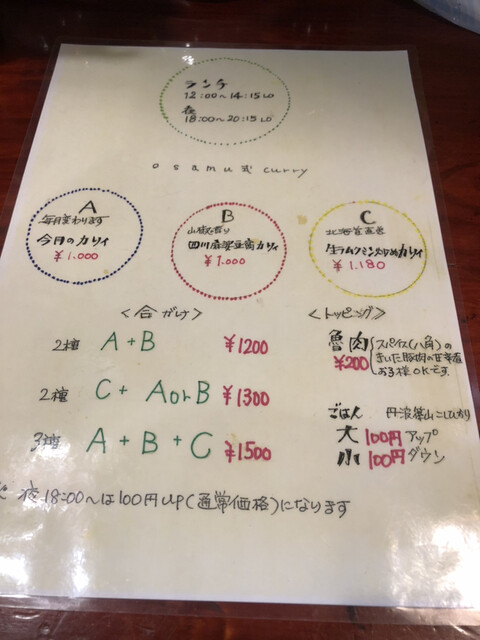 ランチ
12:00〜14:15 LO
夜
18:00〜20:15 LO
osamu式 curry
A
毎月変わります
今月のカリィ
¥1.000
B
山椒香り
四川麻婆豆腐カリィ
¥1.000
C
北海道直送
生ラムクミン炒めカリィ
¥1.180
<合がけ>
2種 A+B ¥1200
2種 C+ AorB ¥1300
3種 A+B+C ¥1500
<トッピング>
魯肉
¥200
スパイス(八角)の
きいた豚肉の甘辛煮
お子様OKです。
ごはん 丹波篠山こしひかり
大 100円アップ
小 100円ダウン
夜18:00〜は100円UP(通常価格)になります